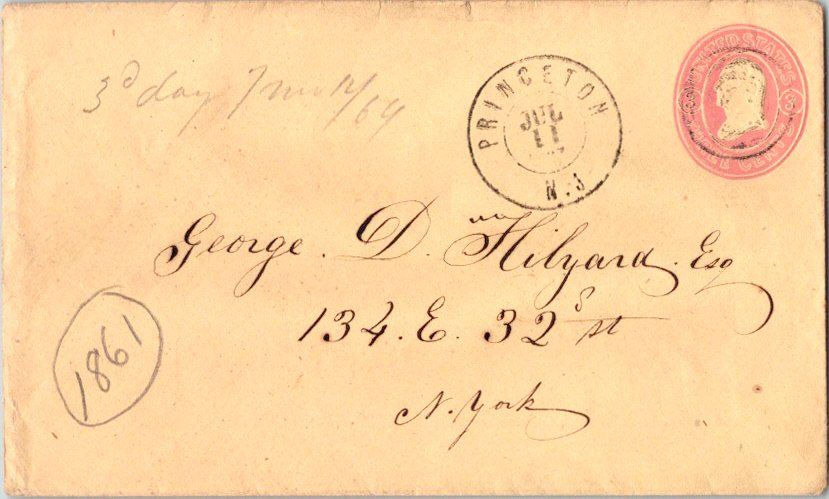 3d day 7 mo 12/64
PRINCETON
JUL
11
N.J.
UNITED STATES
3 3
THREE CENTS
George. D. Hilyard. Esq
134. E. 32d st
N. York
1861